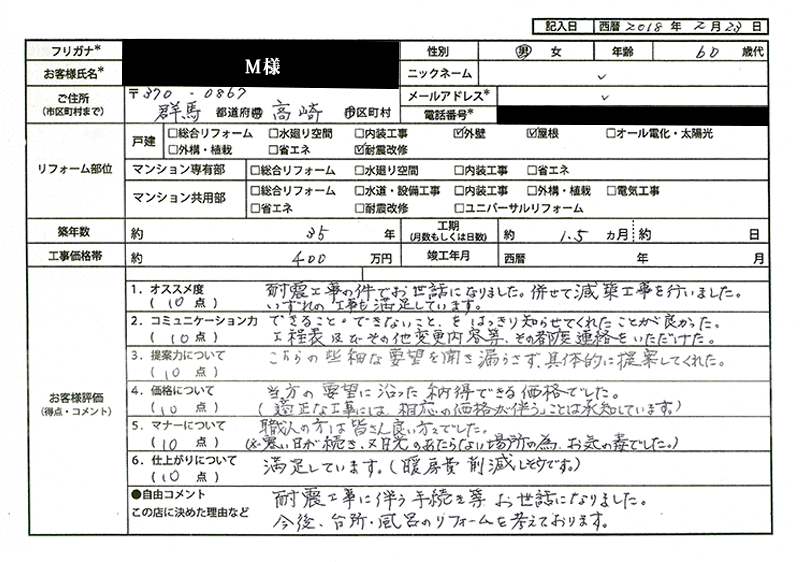 記入日 西暦 2018 年 2 月 28 日
フリガナ* M様 性別 男 女 年齢 60 歳代
お客様氏名* ニックネーム
ご住所 〒370-0867 メールアドレス*
(市区町村まで) 群馬 都道府県 高崎 市区町村 電話番号*
リフォーム部位
戸建 □総合リフォーム □水廻り空間 □内装工事 ☑外壁 ☑屋根 □オール電化・太陽光
□外構・植栽 □省エネ ☑耐震改修
マンション専有部 □総合リフォーム □水廻り空間 □内装工事 □省エネ
マンション共用部 □総合リフォーム □水道・設備工事 □内装工事 □外構・植栽 □電気工事
□省エネ □耐震改修 □ユニバーサルリフォーム
築年数 約 35 年 工期 (月数もしくは日数) 約 1.5 ヵ月 約 日
工事価格帯 約 400 万円 竣工年月 西暦 年 月
お客様評価
(得点・コメント)
1. オススメ度 耐震工事の件でお世話になりました。併せて減築工事を行いました。
(10点) いずれの工事も満足しています。
2. コミュニケーション力 できること・できないこと、をはっきり知らせてくれたことが良かった。
(10点) 工程表及びその他変更内容等、その都度連絡をいただけた。
3. 提案力について こちらの些細な要望を聞き漏らさず、具体的に提案してくれた。
(10点)
4. 価格について 当方の要望に沿った納得できる価格でした。
(10点) (適正な工事には、相応の価格が伴うことは承知しています。)
5. マナーについて 職人の方は皆さん良い方々でした。
(10点) (※寒い日が続き、又日光のあたらない場所の為、お気の毒でした。)
6. 仕上がりについて 満足しています。(暖房費削減しそうです。)
(10点)
●自由コメント 耐震工事に伴う手続き等お世話になりました。
この店に決めた理由など 今後、台所・風呂のリフォームを考えております。